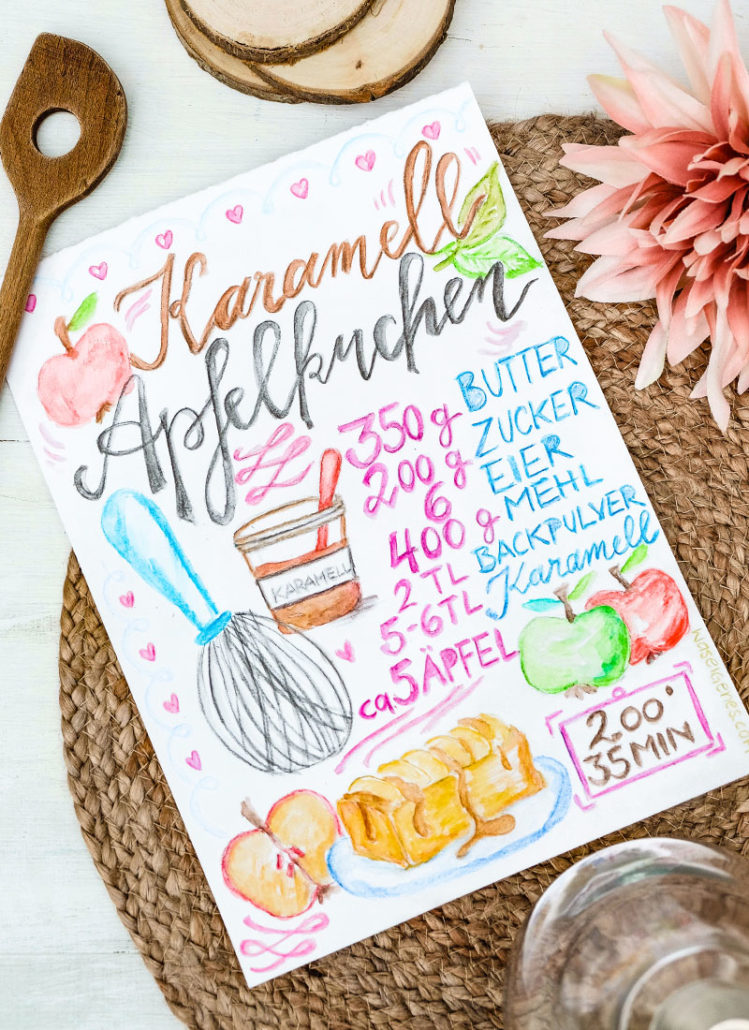 Karamell
Apfelkuchen
350 g BUTTER
200 g ZUCKER
6 EIER
400 g MEHL
2 TL BACKPULVER
5-6TL Karamell
ca 5 ÄPFEL
KARAMELL
2.00°
35 MIN